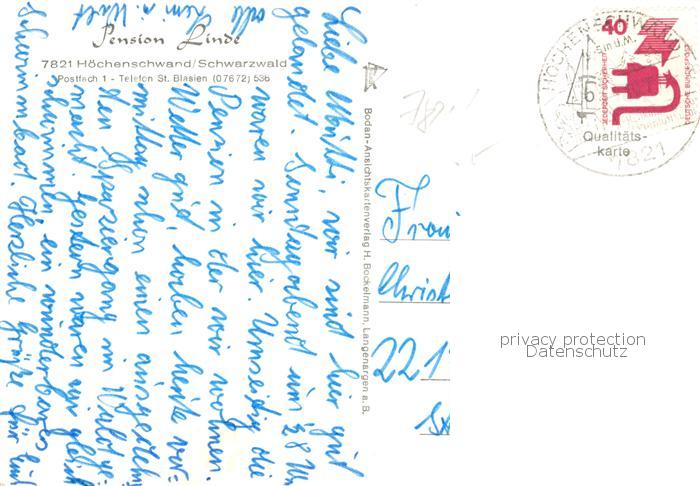 Pension Linde
7821 Höchenschwand/Schwarzwald
Postfach 1 - Telefon St. Blasien (07672) 536
Liebe Mutti, wir sind hier gut
gelandet. Sonntagabend um ½8 Uhr
waren wir hier. Umseitig die
Pension in der wir wohnen.
Wetter gut, haben heute vor-
mittag schon einen ausgedehn
ten Spaziergang im Wald ge-
macht. Gestern waren wir gleich
schwimmen ein wunderbares
Schwimmbad. Herzliche Grüße für Euch
alle
Bodan-Ansichtskartenverlag H. Bockelmann, Langenargen a. B.
HÖCHENSCHWAND
7821
40
JEDERZEIT SICHERHEIT
DEUTSCHE BUNDESPOST
Qualitäts-
karte
Frau
Christ
221
privacy protection
Datenschutz